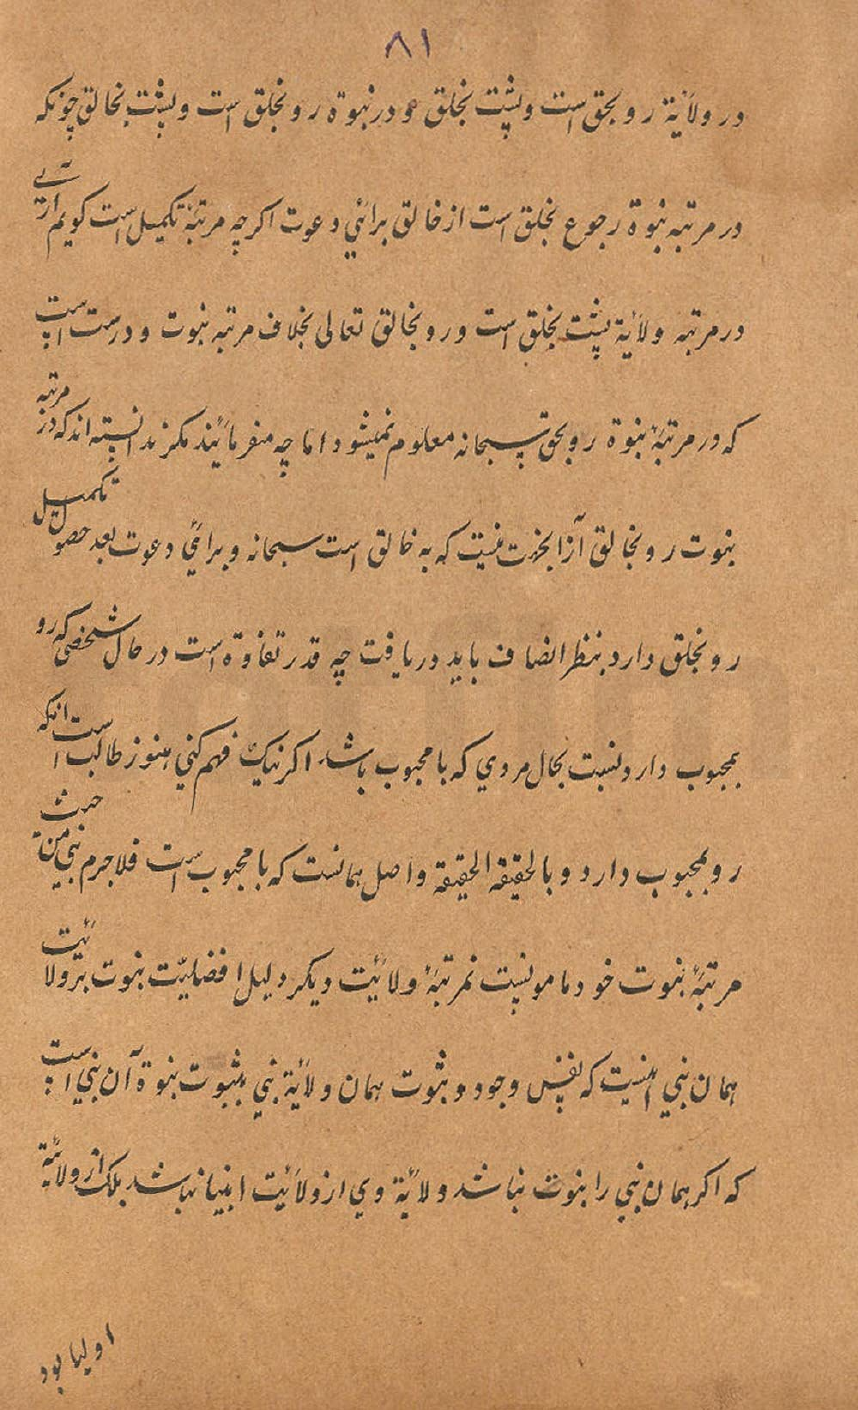 ۸۱
در ولایة رو بحق است و پشت بخلق و در نبوة رو بخلق است و پشت بخالق چونکه
در مرتبه نبوة رجوع بخلق است از خالق برائي دعوت اکرچه مرتبهٔ تکمیل است کویم آرے
در مرتبه ولایة پشت بخلق است و رو بخالق تعالی بخلاف مرتبه نبوت و درست است
که در مرتبهٔ نبوة رو بحق سبحانه معلوم نمیشود اما چه میفرمائید مکر ندانسته اند که در مرتبه
نبوت رو بخالق آنرا بجهت نیست که به خالق است سبحانه و برائي دعوت بعد حصول تکمیل
رو بخلق دارد بنظر انصاف باید دریافت چه قدر تفاوة است در حال شخصی که رو
بمحبوب دارد نسبت بحال مردي که با محبوب باشد اکر نیک فهم کني هنوز طالب است آنکه
رو بمحبوب دارد و بالحقیقه الحقیقة واصل همانست که با محبوب است فلاجرم نبي من حیث
مرتبهٔ نبوت خود مامو نیست نمرتبهٔ ولائیت دیکر دلیل افضلیّت نبوت بر ولائیت
همان نبي اینست که بنفس وجود و ثبوت همان ولایة نبي بثبوت نبوة آن نبي است
که اکر همان نبي را نبوت نباشد ولایة وي از ولائیت انبیا نباشد بلک از ولایة
اولیا بود